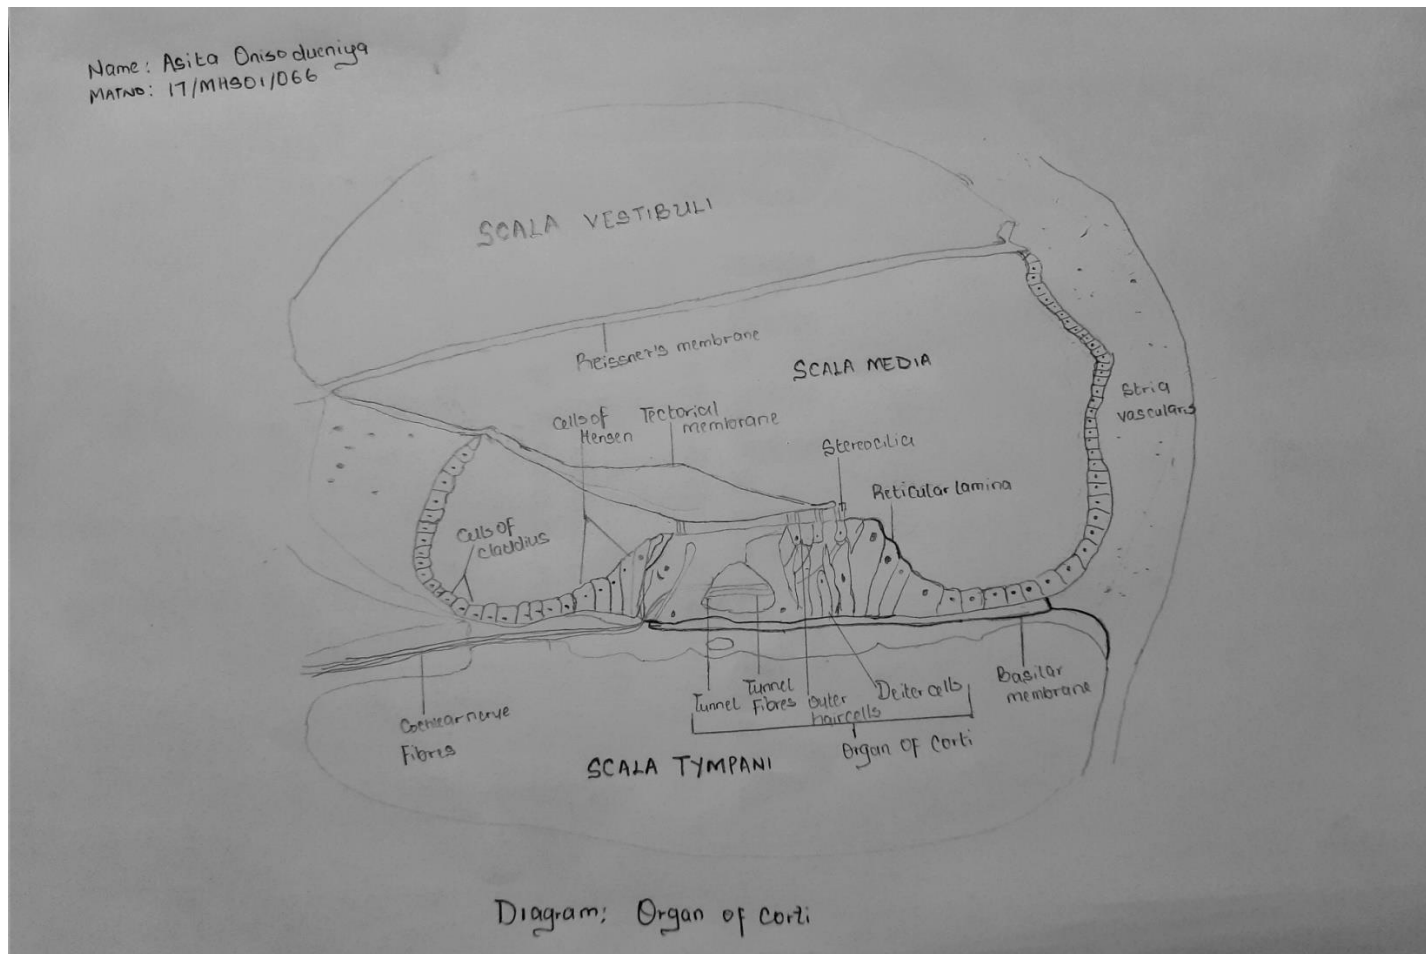 Name: Asita Onisodueniya
MATNO: 17/MHS01/066
SCALA VESTIBULI
Reissner's membrane
SCALA MEDIA
Stria
vascularis
Cells of
Hensen
Tectorial
membrane
Stereocilia
Reticular lamina
Cells of
claddius
Cochlear nerve
Fibres
Tunnel
Tunnel
Fibres
Outer
haircells
Deiter cells
Basilar
membrane
Organ of Corti
SCALA TYMPANI
Diagram: Organ of Corti